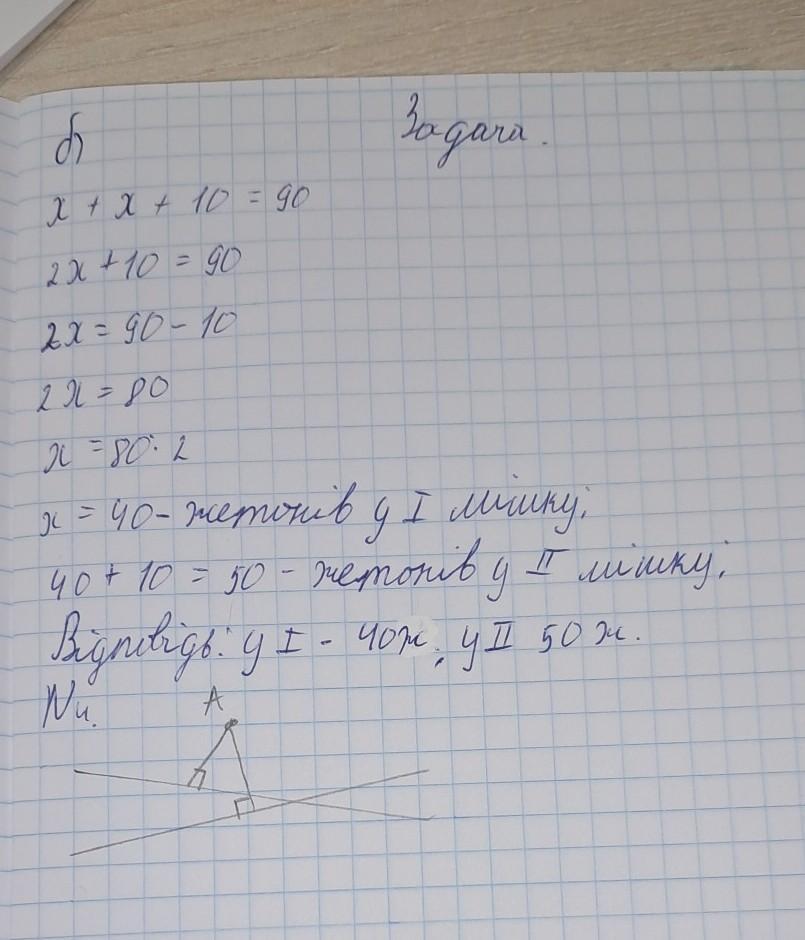 б) Задача.
x + x + 10 = 90
2x + 10 = 90
2x = 90 - 10
2x = 80
x = 80 : 2
x = 40 - жетонів у I мішку;
40 + 10 = 50 - жетонів у II мішку;
Відповідь: у I - 40ж; у II 50 ж.
N4.
A